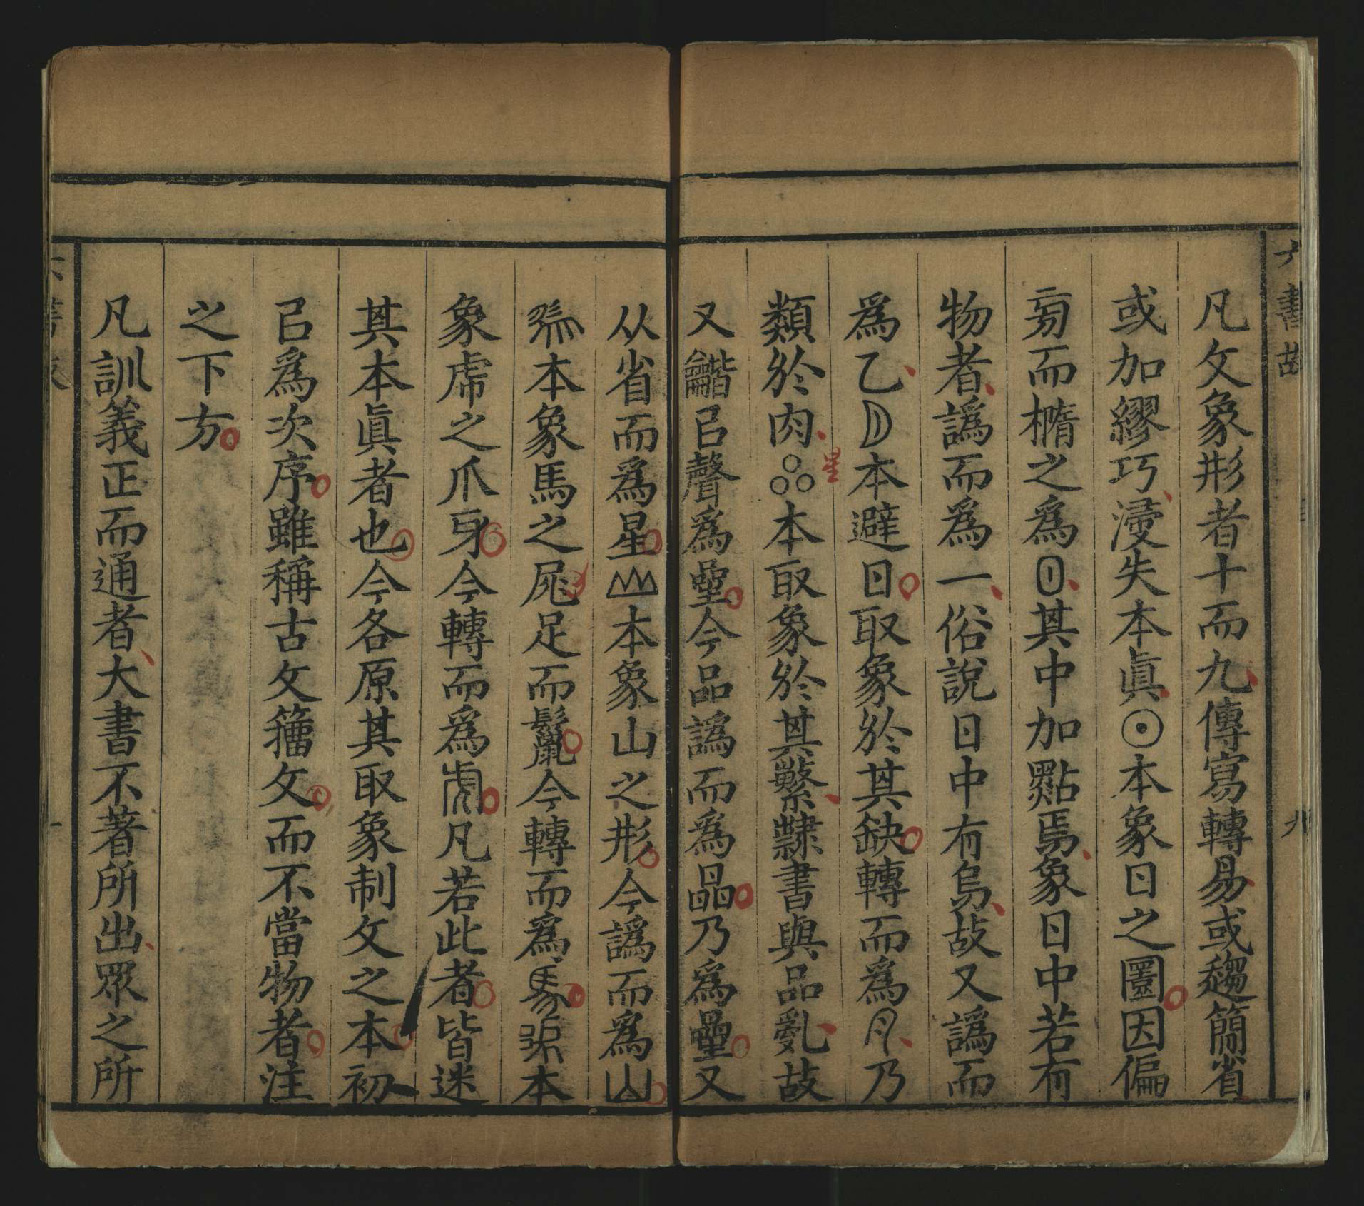 六書故
九
凡文象形者十而九傳寫轉易或趨簡省
或加繆巧寖失本眞⊙本象日之圜因偏
旁而橢之為日其中加點焉象日中若有
物者譌而為一俗說日中有烏故又譌而
為乙本避日取象於其缺轉而為月乃
類於肉本取象於其繁隷書與品亂故
星
又㠯聲為曐今品譌而為晶乃為曐又
从省而為星本象山之形今譌而為山
本象馬之尾足而鬣今轉而為馬本
象虎之爪牙今轉而為凡若此者皆迷
其本眞者也今各原其取象制文之本初
㠯為次序雖稱古文籒文而不當物者注
之下方
凡訓義正而通者大書不著所出眾之所